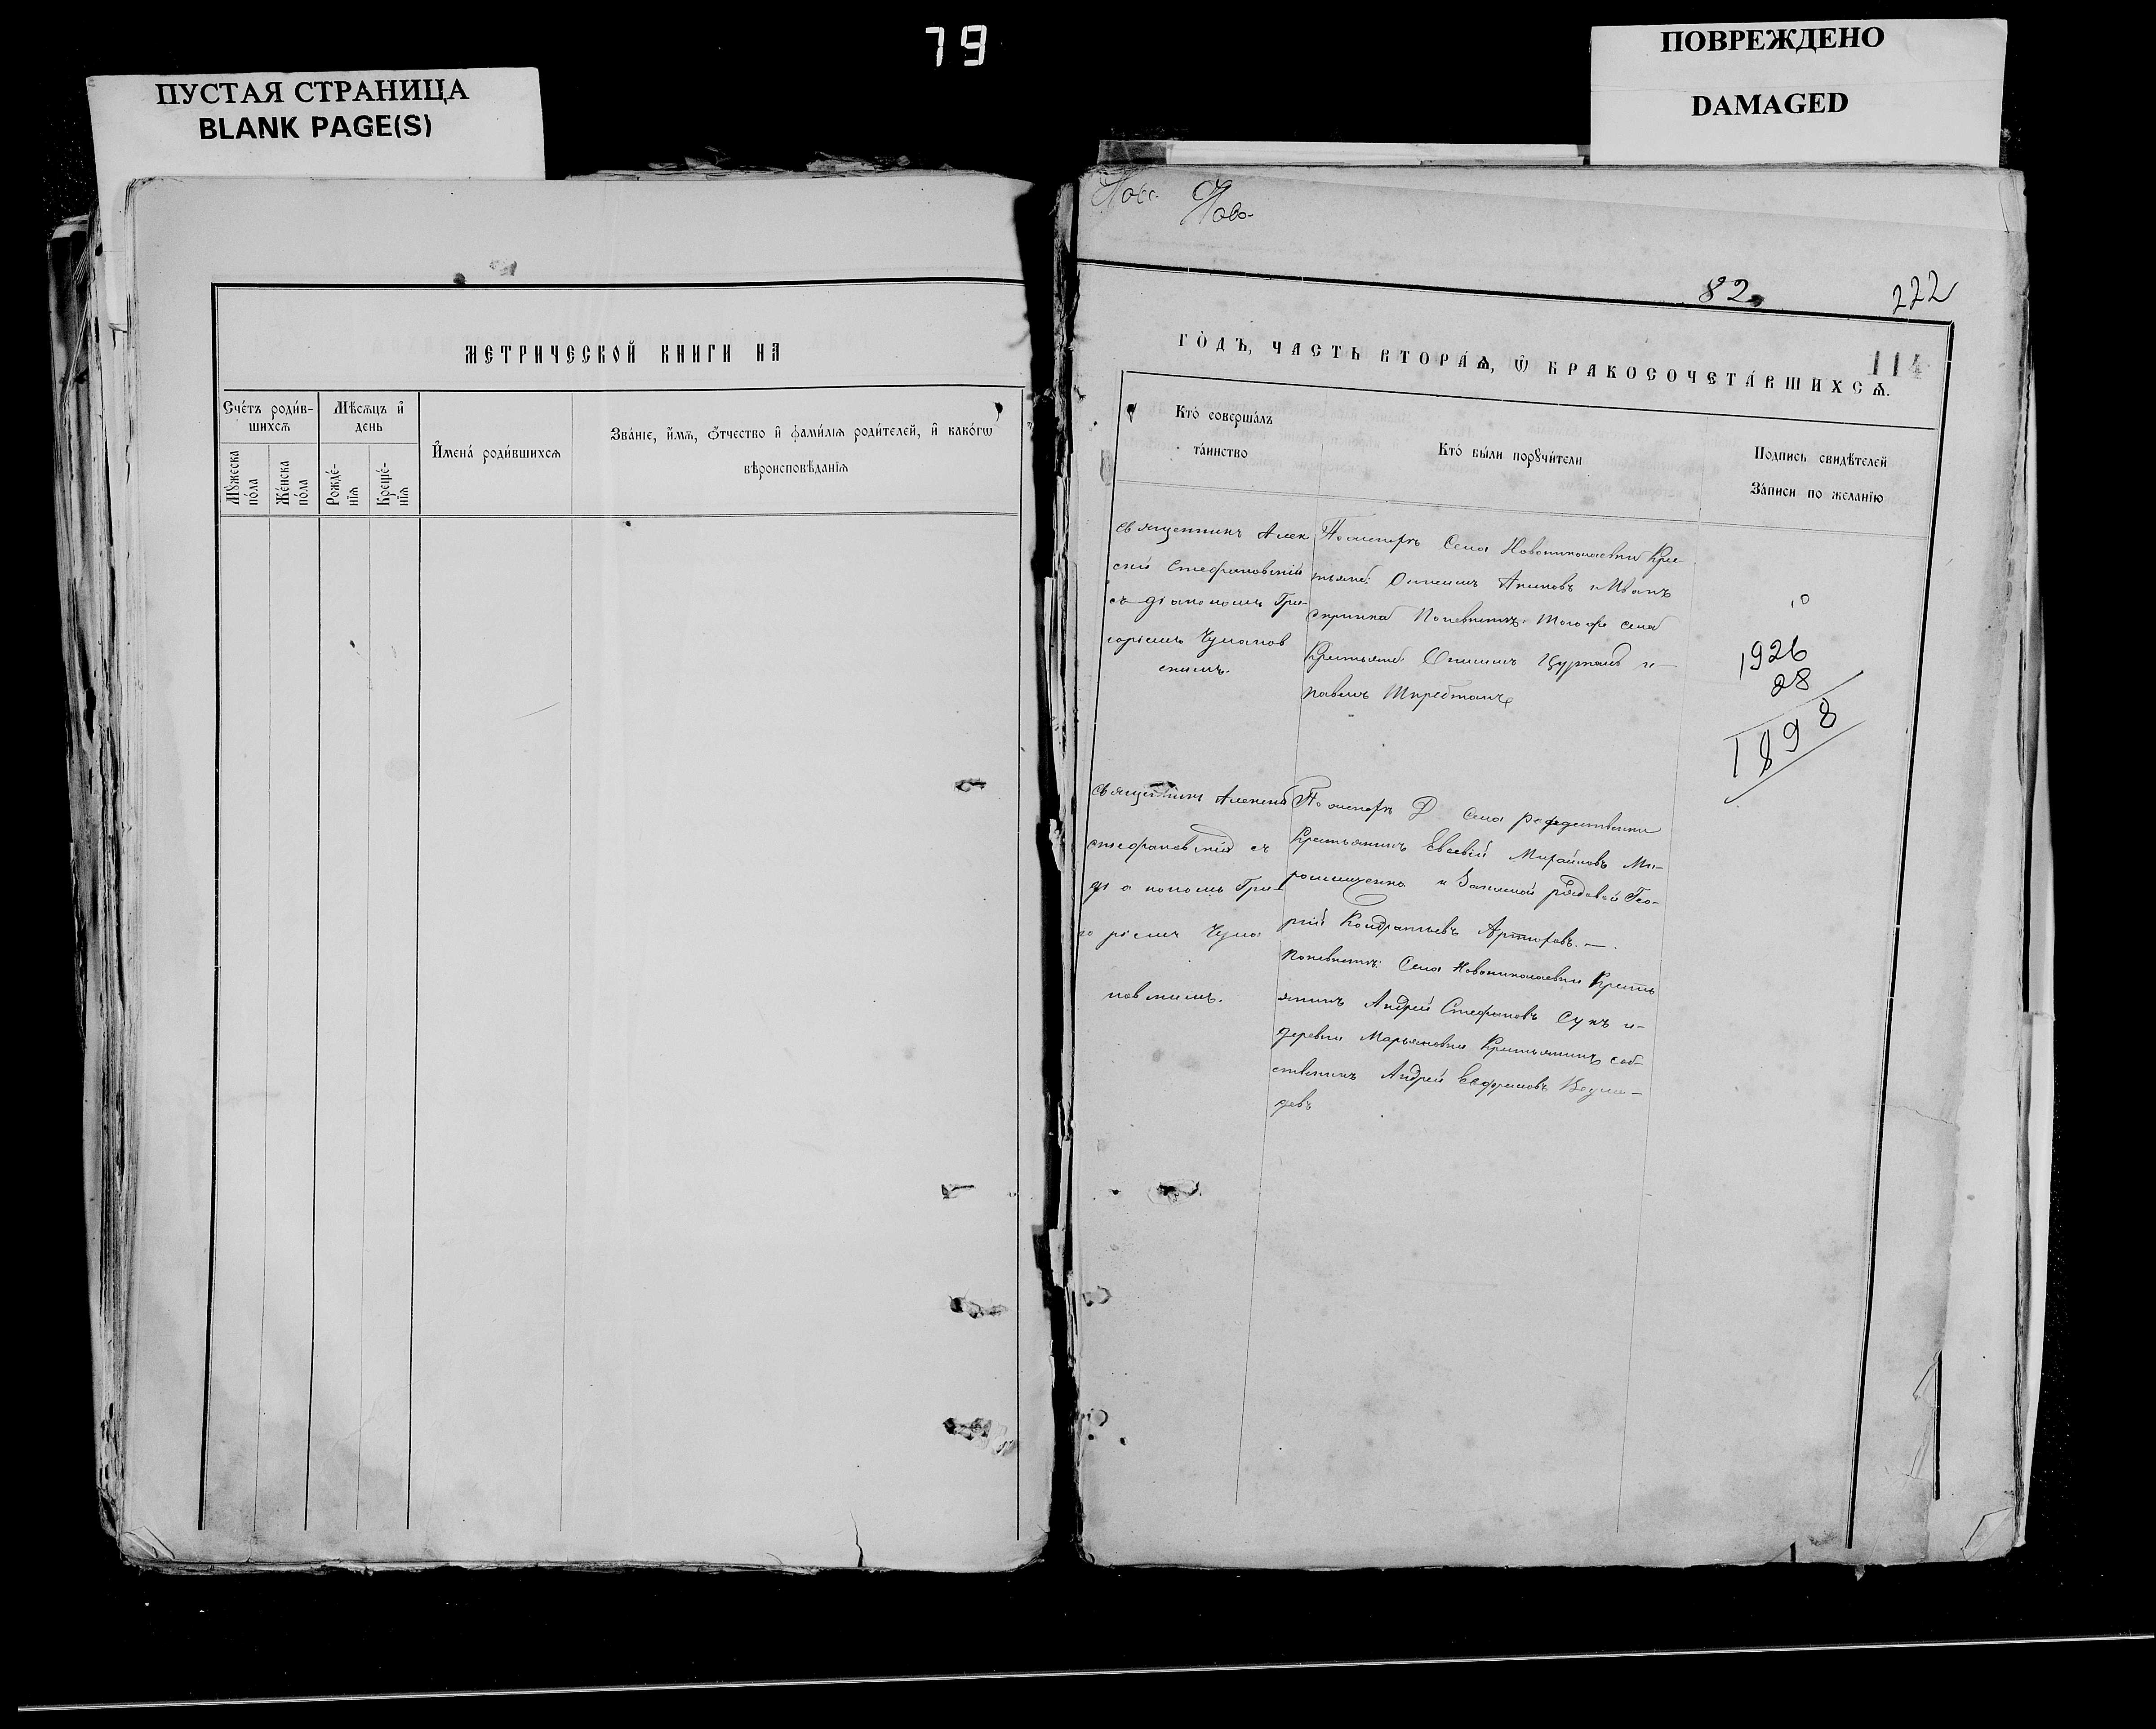 79
ПУСТАЯ СТРАНИЦА
BLANK PAGE(S)
ПОВРЕЖДЕНО
DAMAGED
МЕТРИЧЕСКОЙ КНИГИ НА
Сче́тъ роди́в-
шихсѧ
Мѣсѧцъ и҆
день
И҆мена̀ роди́вшихсѧ
Зва́нїе, и҆́мѧ, ѻ҆́тчество и҆ фами́лїѧ роди́телей, и҆ како́гѡ
вѣроисповѣ́данїѧ
Мꙋ́жеска
по́ла
Же́нска
по́ла
Рожде́-
нїѧ
Креще́-
нїѧ
Ново-
82
222
114
ГО́ДЪ, ЧАСТЬ ВТОРА́Ѧ, Ѡ҆ БРАКОСОЧЕТА́ВШИХСѦ.
Кто̀ соверша́лъ
та́инство
Кто̀ бы́ли порꙋчи́тели
Подпись свидѣ́телей
За́писи по жела́нїю
Священникъ Алек
сѣй Стефановскій
съ діакономъ Гри-
горіемъ Чумаков
скимъ.
По женихѣ Села Новониколаевки Кре
стьяне: Онисимъ Акимовъ и Иванъ
По невѣстѣ: того же села
Крестьяне: Онисимъ и
Павелъ
1926
28
1898
Священникъ Алексѣй
Стефановскій съ
діакономъ Гри-
горіемъ Чума
ковскимъ.
По женихѣ Села Рождественки
Крестьянинъ Евсевій Ми-
рошниченко и Запасной рядовой Гео-
ргій Кондратьевъ
По невѣстѣ: Села Новониколаевки Кресть
янинъ Андрей Стефановъ Сукъ и
деревни Марьяновки Крестьянинъ соб-
ственникъ Андрей Ефремовъ